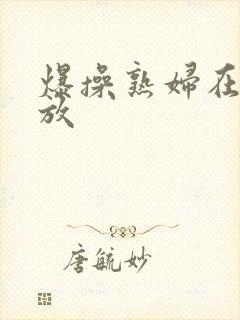 爆操熟妇在
放
唐毓妙